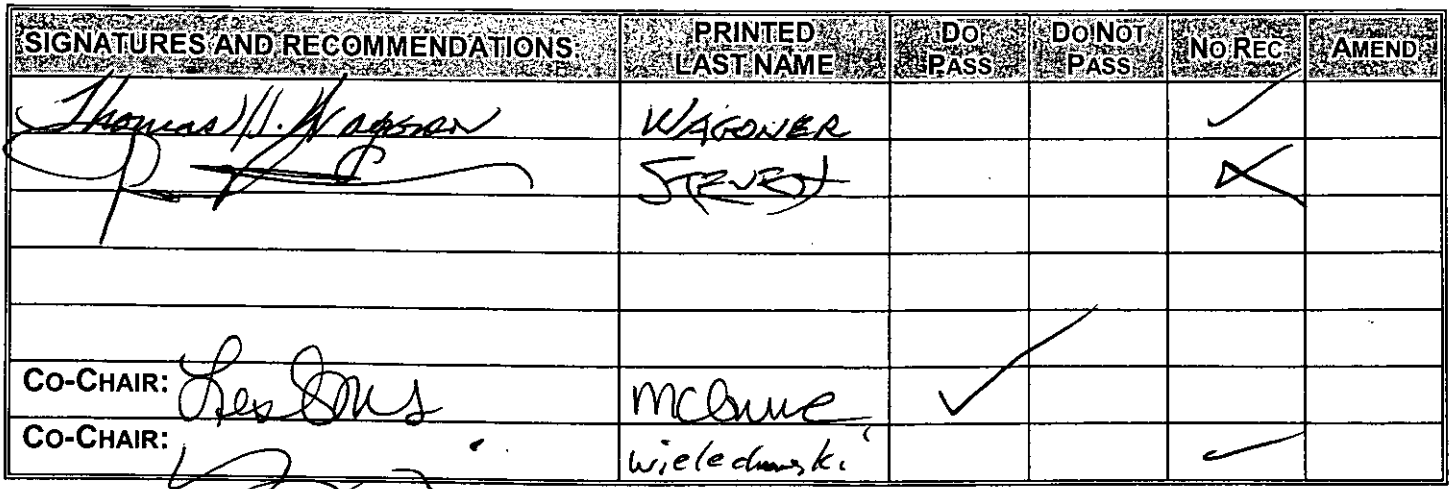 SIGNATURES AND RECOMMENDATIONS: PRINTED LAST NAME DO PASS DO NOT PASS NO REC AMEND
Thomas H. Wagoner WAGONER
STEVENS
CO-CHAIR: McGuire
CO-CHAIR: Wielechowski